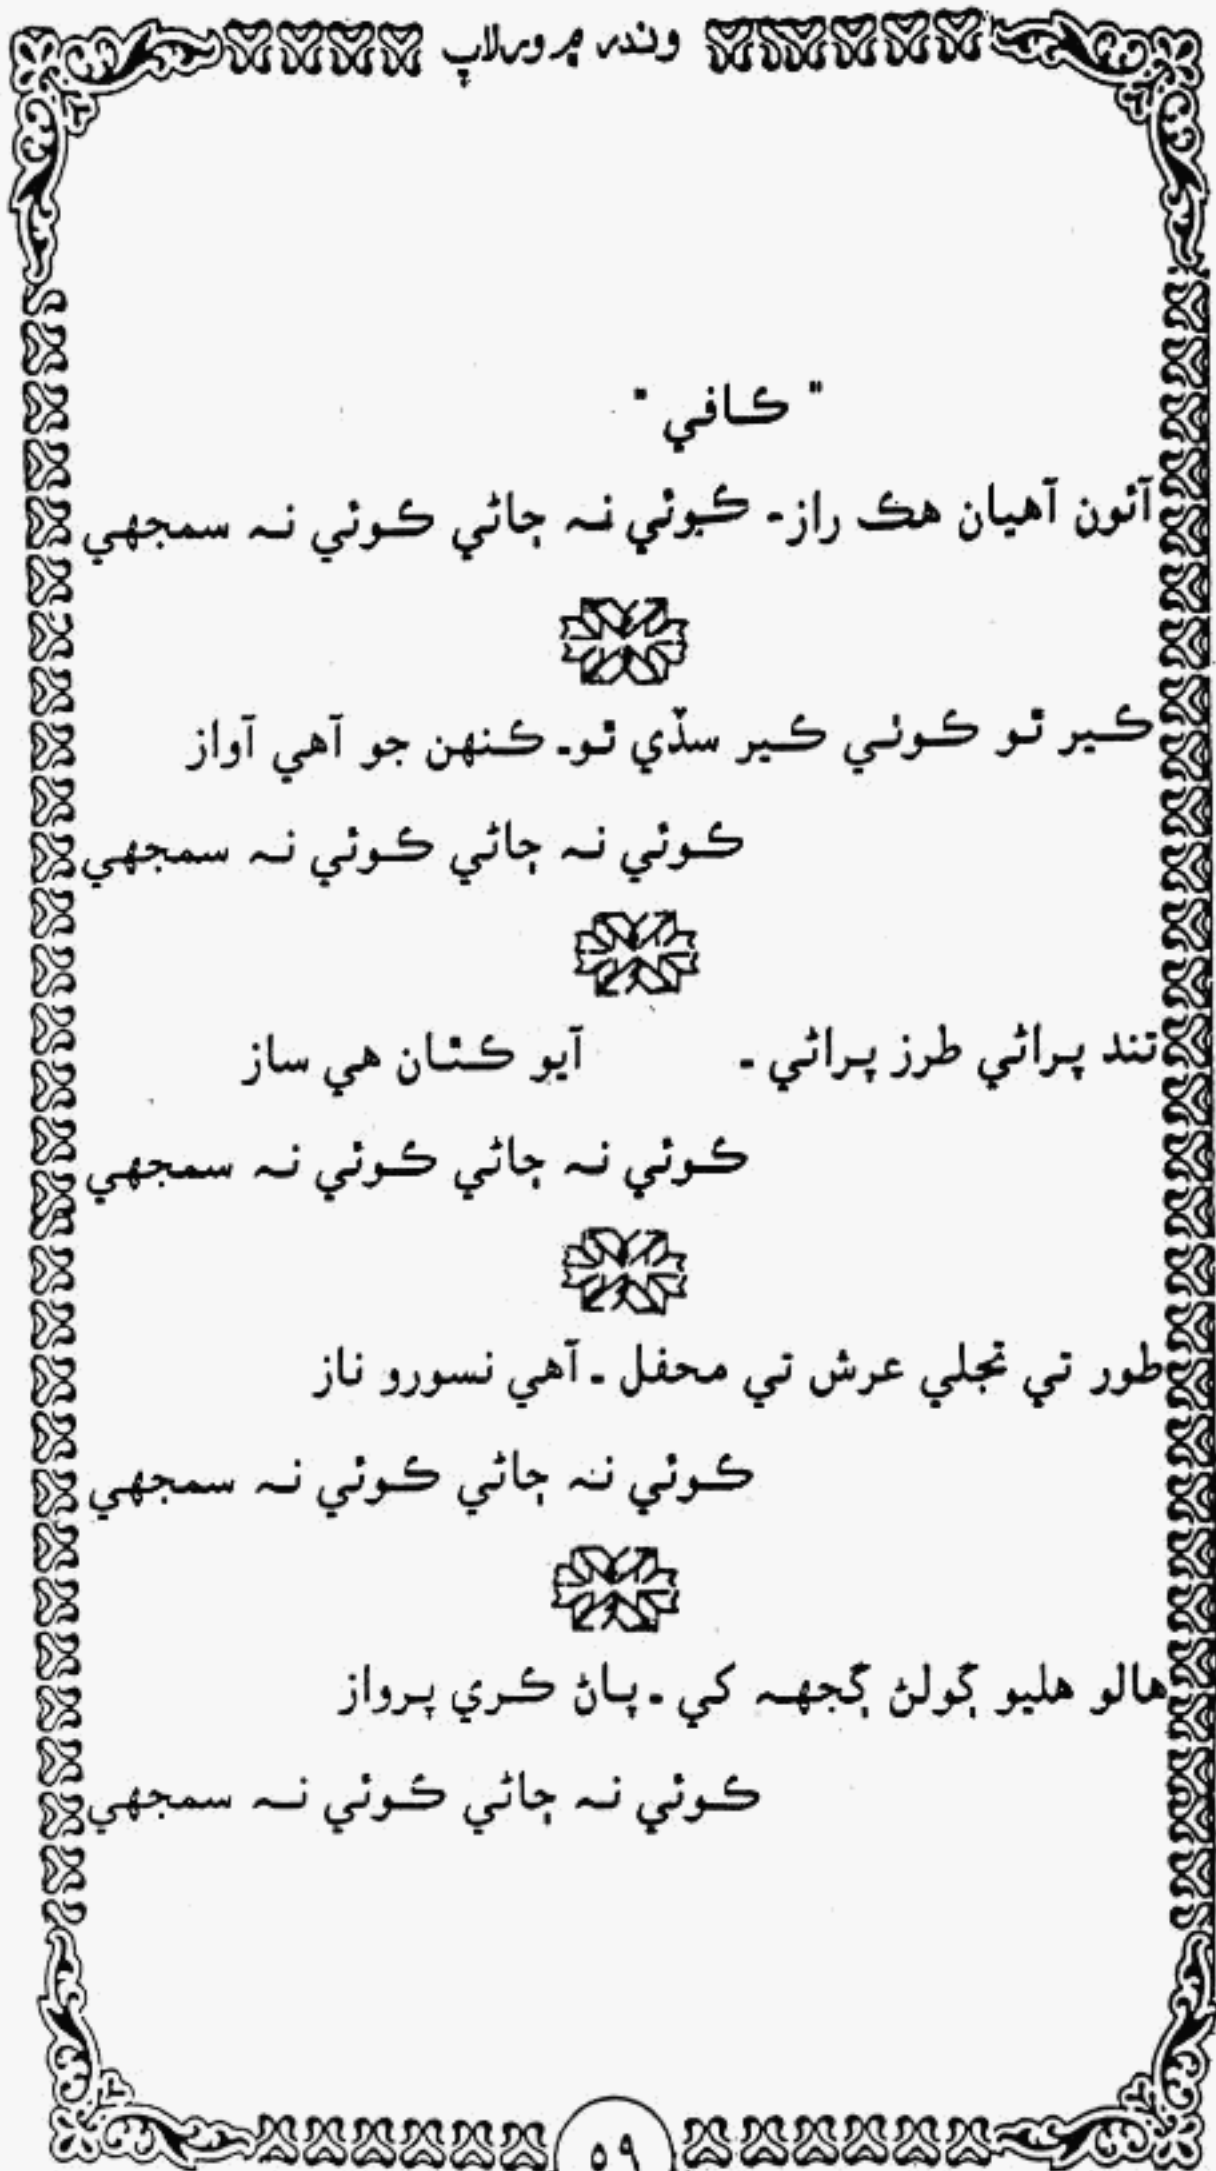 وندر ۾ ورلاپ
" ڪافي "
آئون آهيان هڪ راز۔ ڪوئي نہ ڄاڻي ڪوئي نہ سمجهي
ڪير ٿو ڪوئي ڪير سڏي ٿو۔ ڪنهن جو آهي آواز
ڪوئي نہ ڄاڻي ڪوئي نہ سمجهي
تند پراڻي طرز پراڻي ۔ آيو ڪٿان هي ساز
ڪوئي نہ ڄاڻي ڪوئي نہ سمجهي
طور تي تجلي عرش تي محفل ۔ آهي نسورو ناز
ڪوئي نہ ڄاڻي ڪوئي نہ سمجهي
هالو هليو ڳولڻ ڳجهہ کي ۔ پاڻ ڪري پرواز
ڪوئي نہ ڄاڻي ڪوئي نہ سمجهي
٥٩